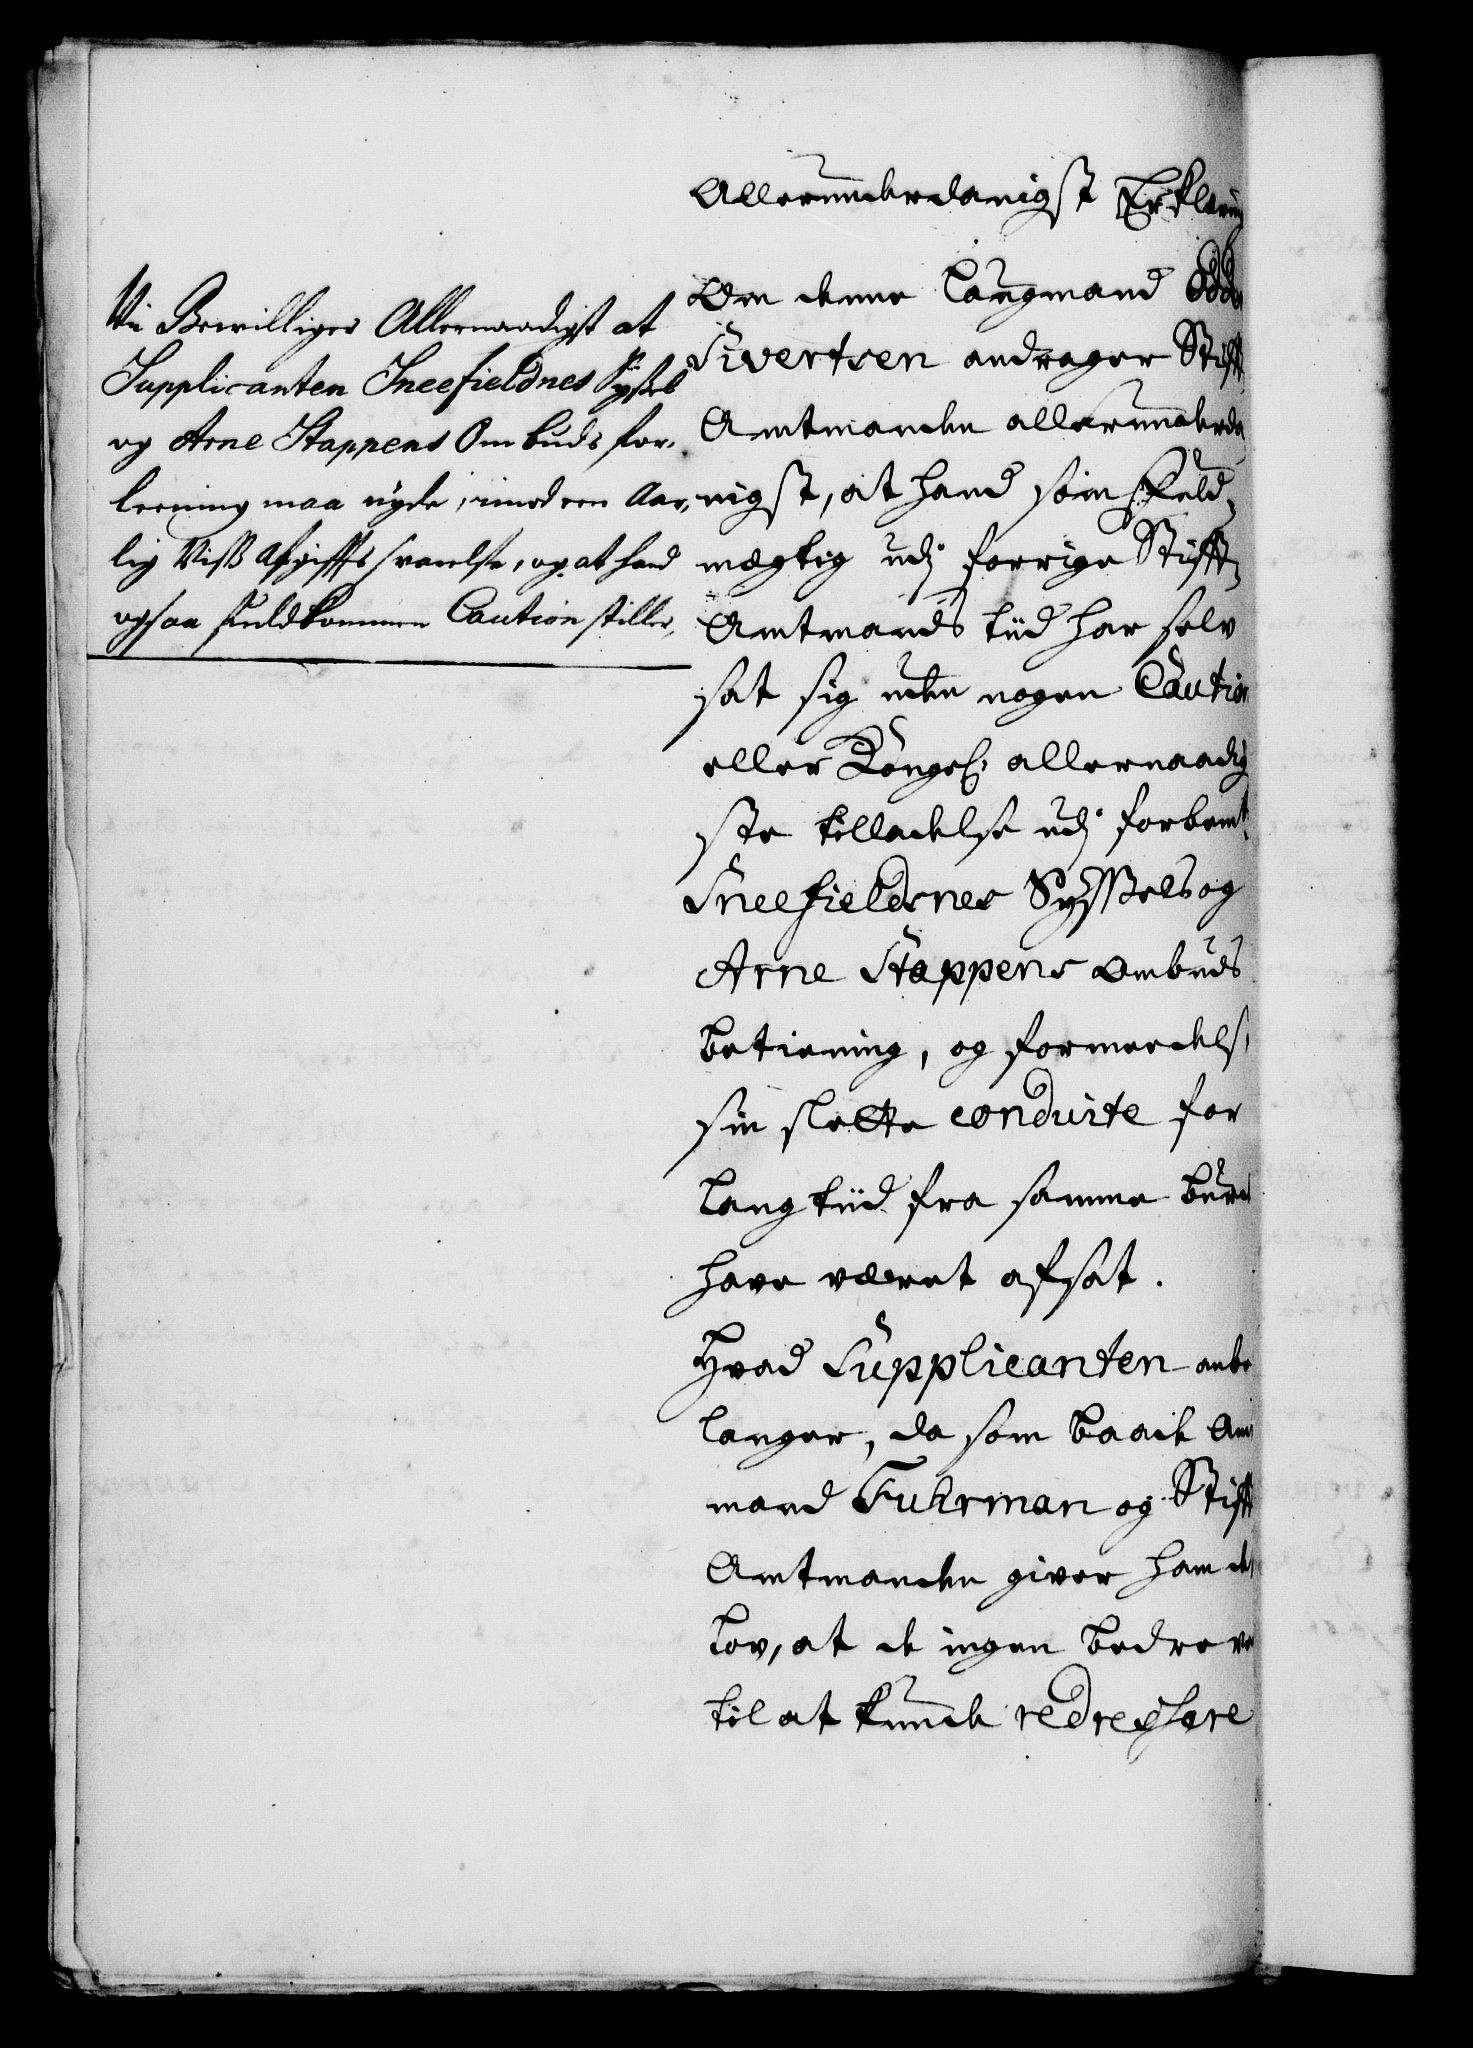 Vii Bewilliger Allernaadigst at
Supplicanten Sneefieldnes Syssel
og Arne Stappens Ombuds for-
leening maa nyde, imod een Aar-
lig Viss Afgiffts svarelse, og at hand
ogsaa fuldkommen Caution stiller,
Allerunderdanigst Erklæring
Om denne Laugmand Odde
Sivertsen andrager Stifft
Amtmanden allerunderda
nigst, at hand som Fuld-
mægtig udj forrige Stifft-
Amtmands tiid har selv
sat sig uden nogen Caution
eller Kongel: allernaadig
ste tilladelse udj forbemt
Sneefieldsnes Syssels og
Arne Stappens Ombuds
betiening, og formedelst
sin slette conduite for
lang tiid fra samme burde
have været afsat.
Hvad Supplicanten anbe
langer, da som baade Amt
mand Fuhrman og Stifft
Amtmanden giver ham det
Lov, at de ingen bedre ved
til at kunde redressere